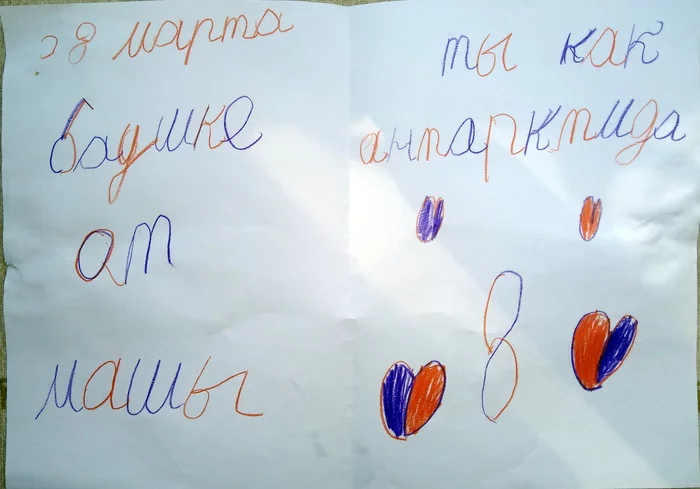 с 8 марта
баушке
ат
машы
ты как
антарктида
8